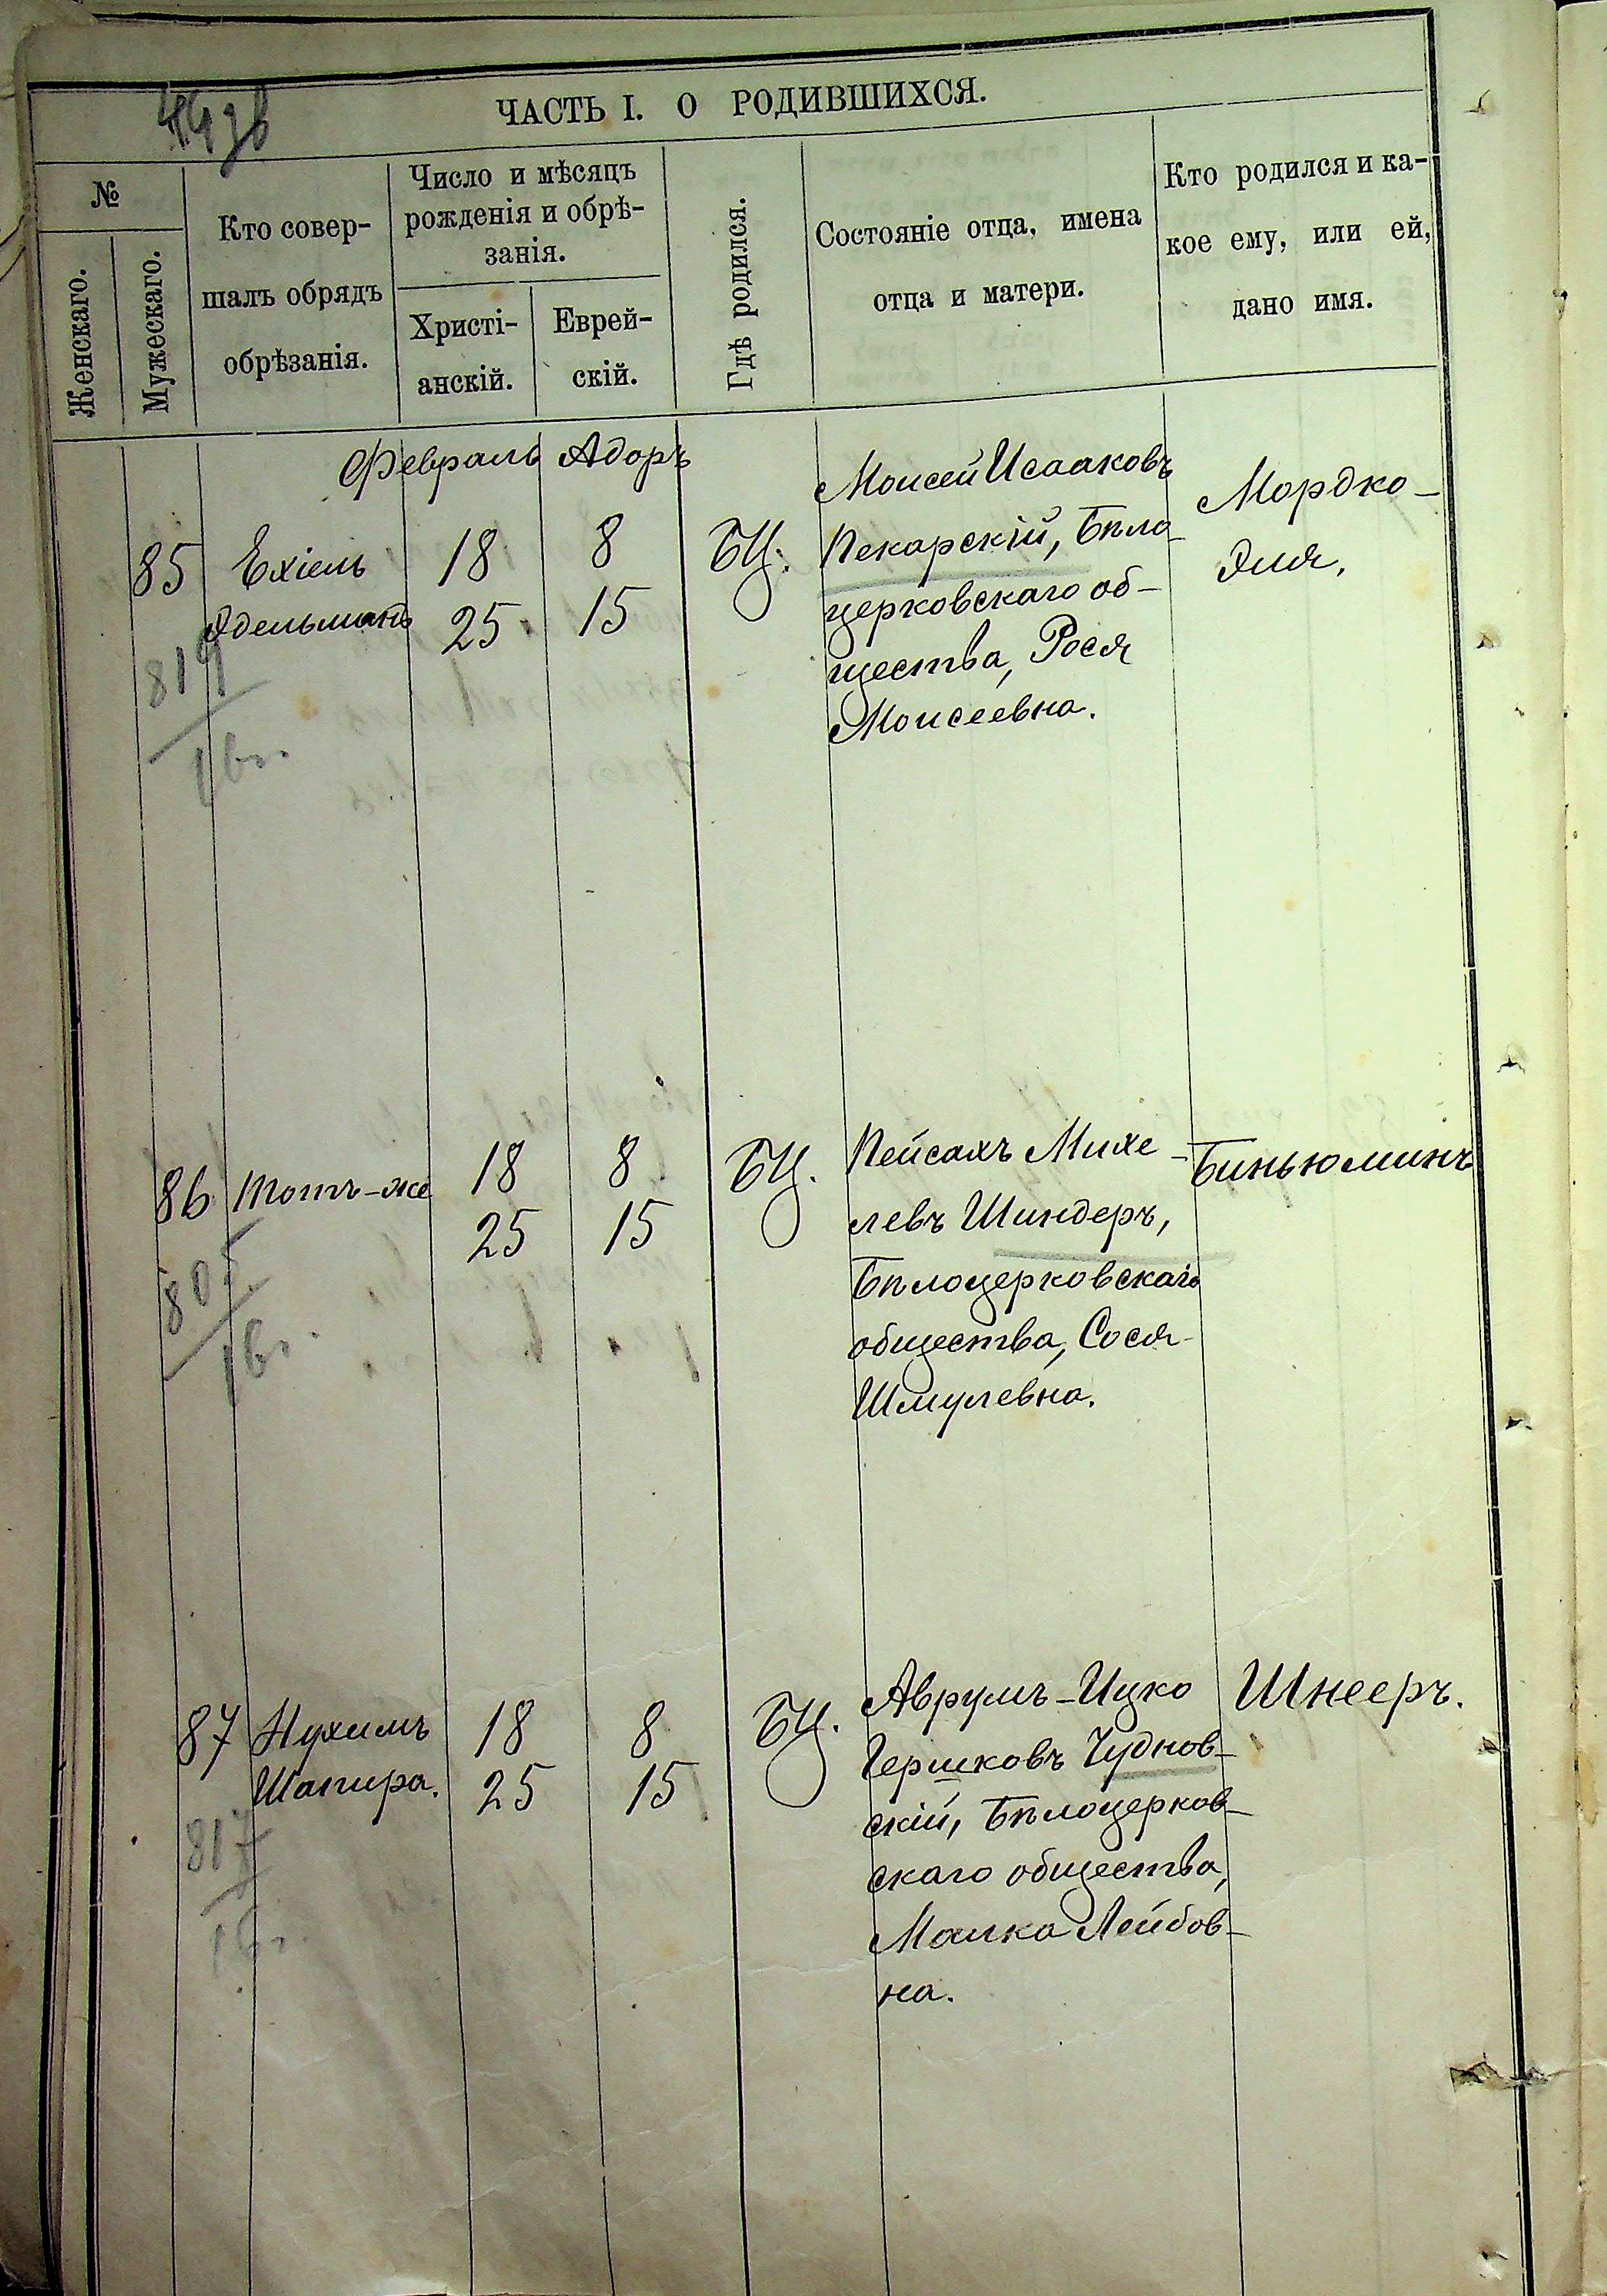 ЧАСТЬ I. О РОДИВШИХСЯ.
№
Женскаго.
Мужескаго.
Кто совер-
шалъ обрядъ
обрѣзанія.
Число и мѣсяцъ
рожденія и обрѣ-
занія.
Христі-
анскій.
Еврей-
скій.
Гдѣ родился.
Состояніе отца, имена
отца и матери.
Кто родился и ка-
кое ему, или ей,
дано имя.
Февраль Адоръ
85
Ехіель
Эдельманъ
18
25
8
15
БЦ.
Моисей Исааковъ
Пекарскій, Бѣло-
церковскаго об-
щества, Рося
Моисеевна.
Мордко-
Эля.
819
86
Тотъ-же
18
25
8
15
БЦ.
Пейсахъ Михе-
левъ Шиндеръ,
Бѣлоцерковскаго
общества, Сося
Шмулевна.
Биньюминъ
805
87
Нухимъ
Шапира.
18
25
8
15
БЦ.
Аврумъ-Ицко
Гершковъ Чуднов-
скій, Бѣлоцерков-
скаго общества,
Малка Лейбов-
на.
Шнееръ.
817